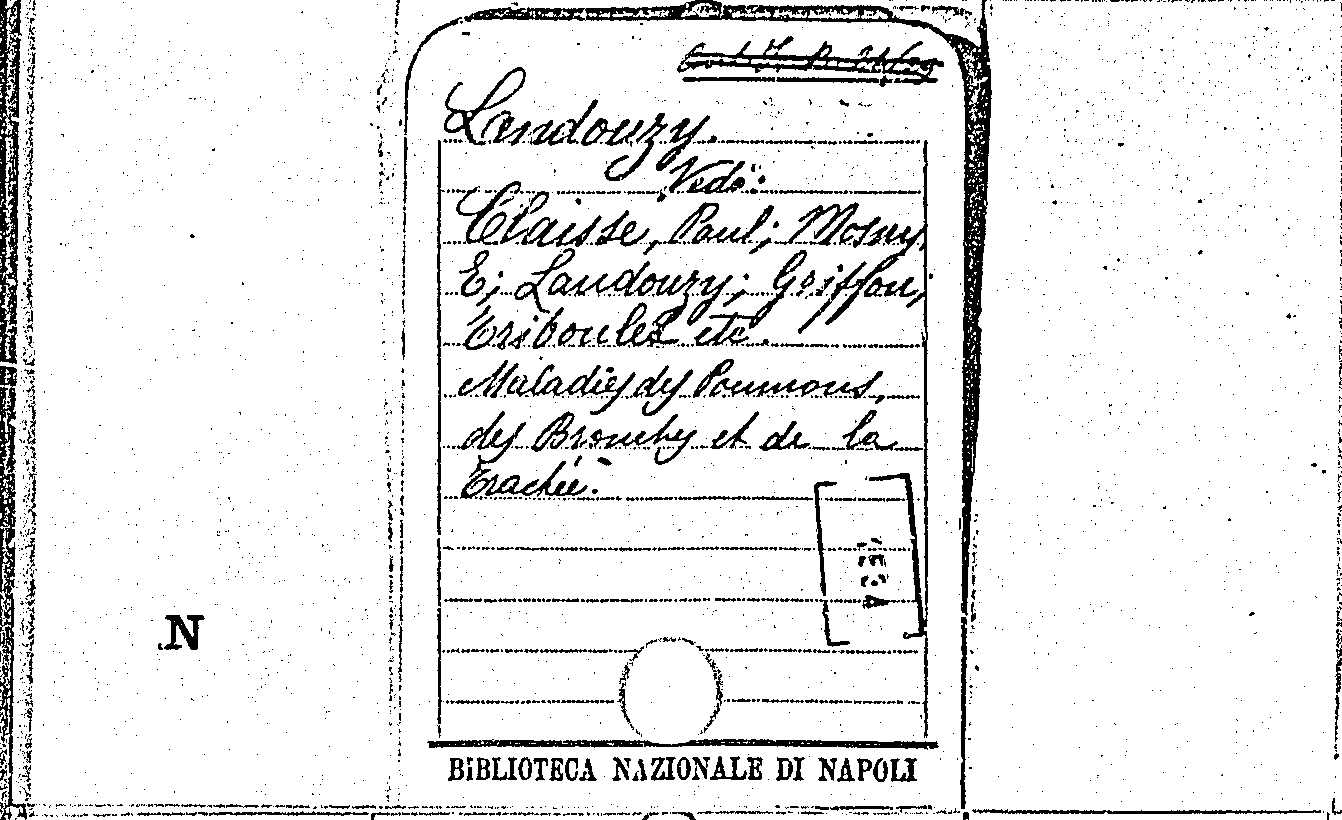 Landouzy.
Vedi:
Claisse, Paul; Mosny,
E; Landouzy; Griffon,
Triboulet etc.
Maladies des Poumons,
des Bronches et de la
Trachée.
N
BIBLIOTECA NAZIONALE DI NAPOLI